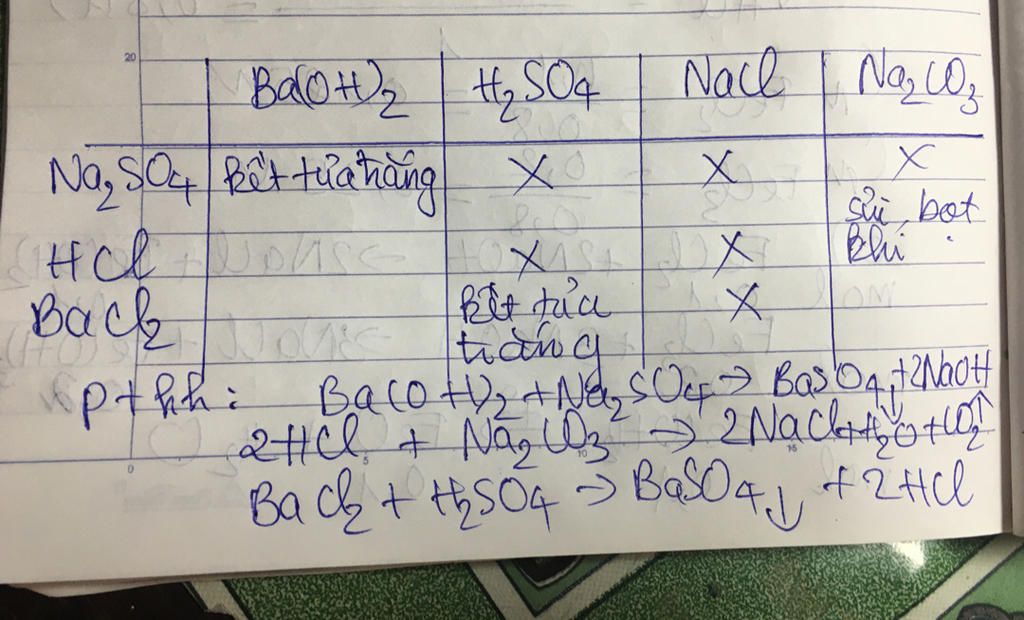 20
Ba(OH)2 H2SO4 NaCl Na2CO3
Na2SO4 Kết tủa trắng X X X
HCl X X sủi bọt khí
BaCl2 Kết tủa trắng X
pthh: Ba(OH)2 + Na2SO4 → BaSO4↓ + 2NaOH
2HCl + Na2CO3 → 2NaCl + H2O + CO2↑
0 5 10 15
BaCl2 + H2SO4 → BaSO4↓ + 2HCl